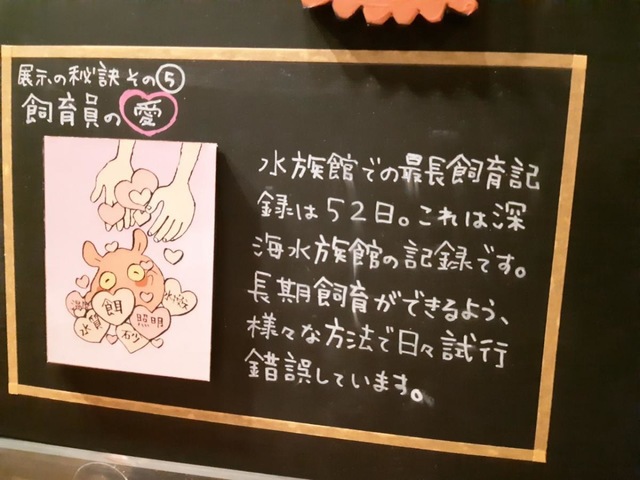 展示の秘訣その⑤
飼育員の愛
水族館での最長飼育記
録は52日。これは深
海水族館の記録です。
長期飼育ができるよう、
様々な方法で日々試行
錯誤しています。
餌
水質
照明
砂